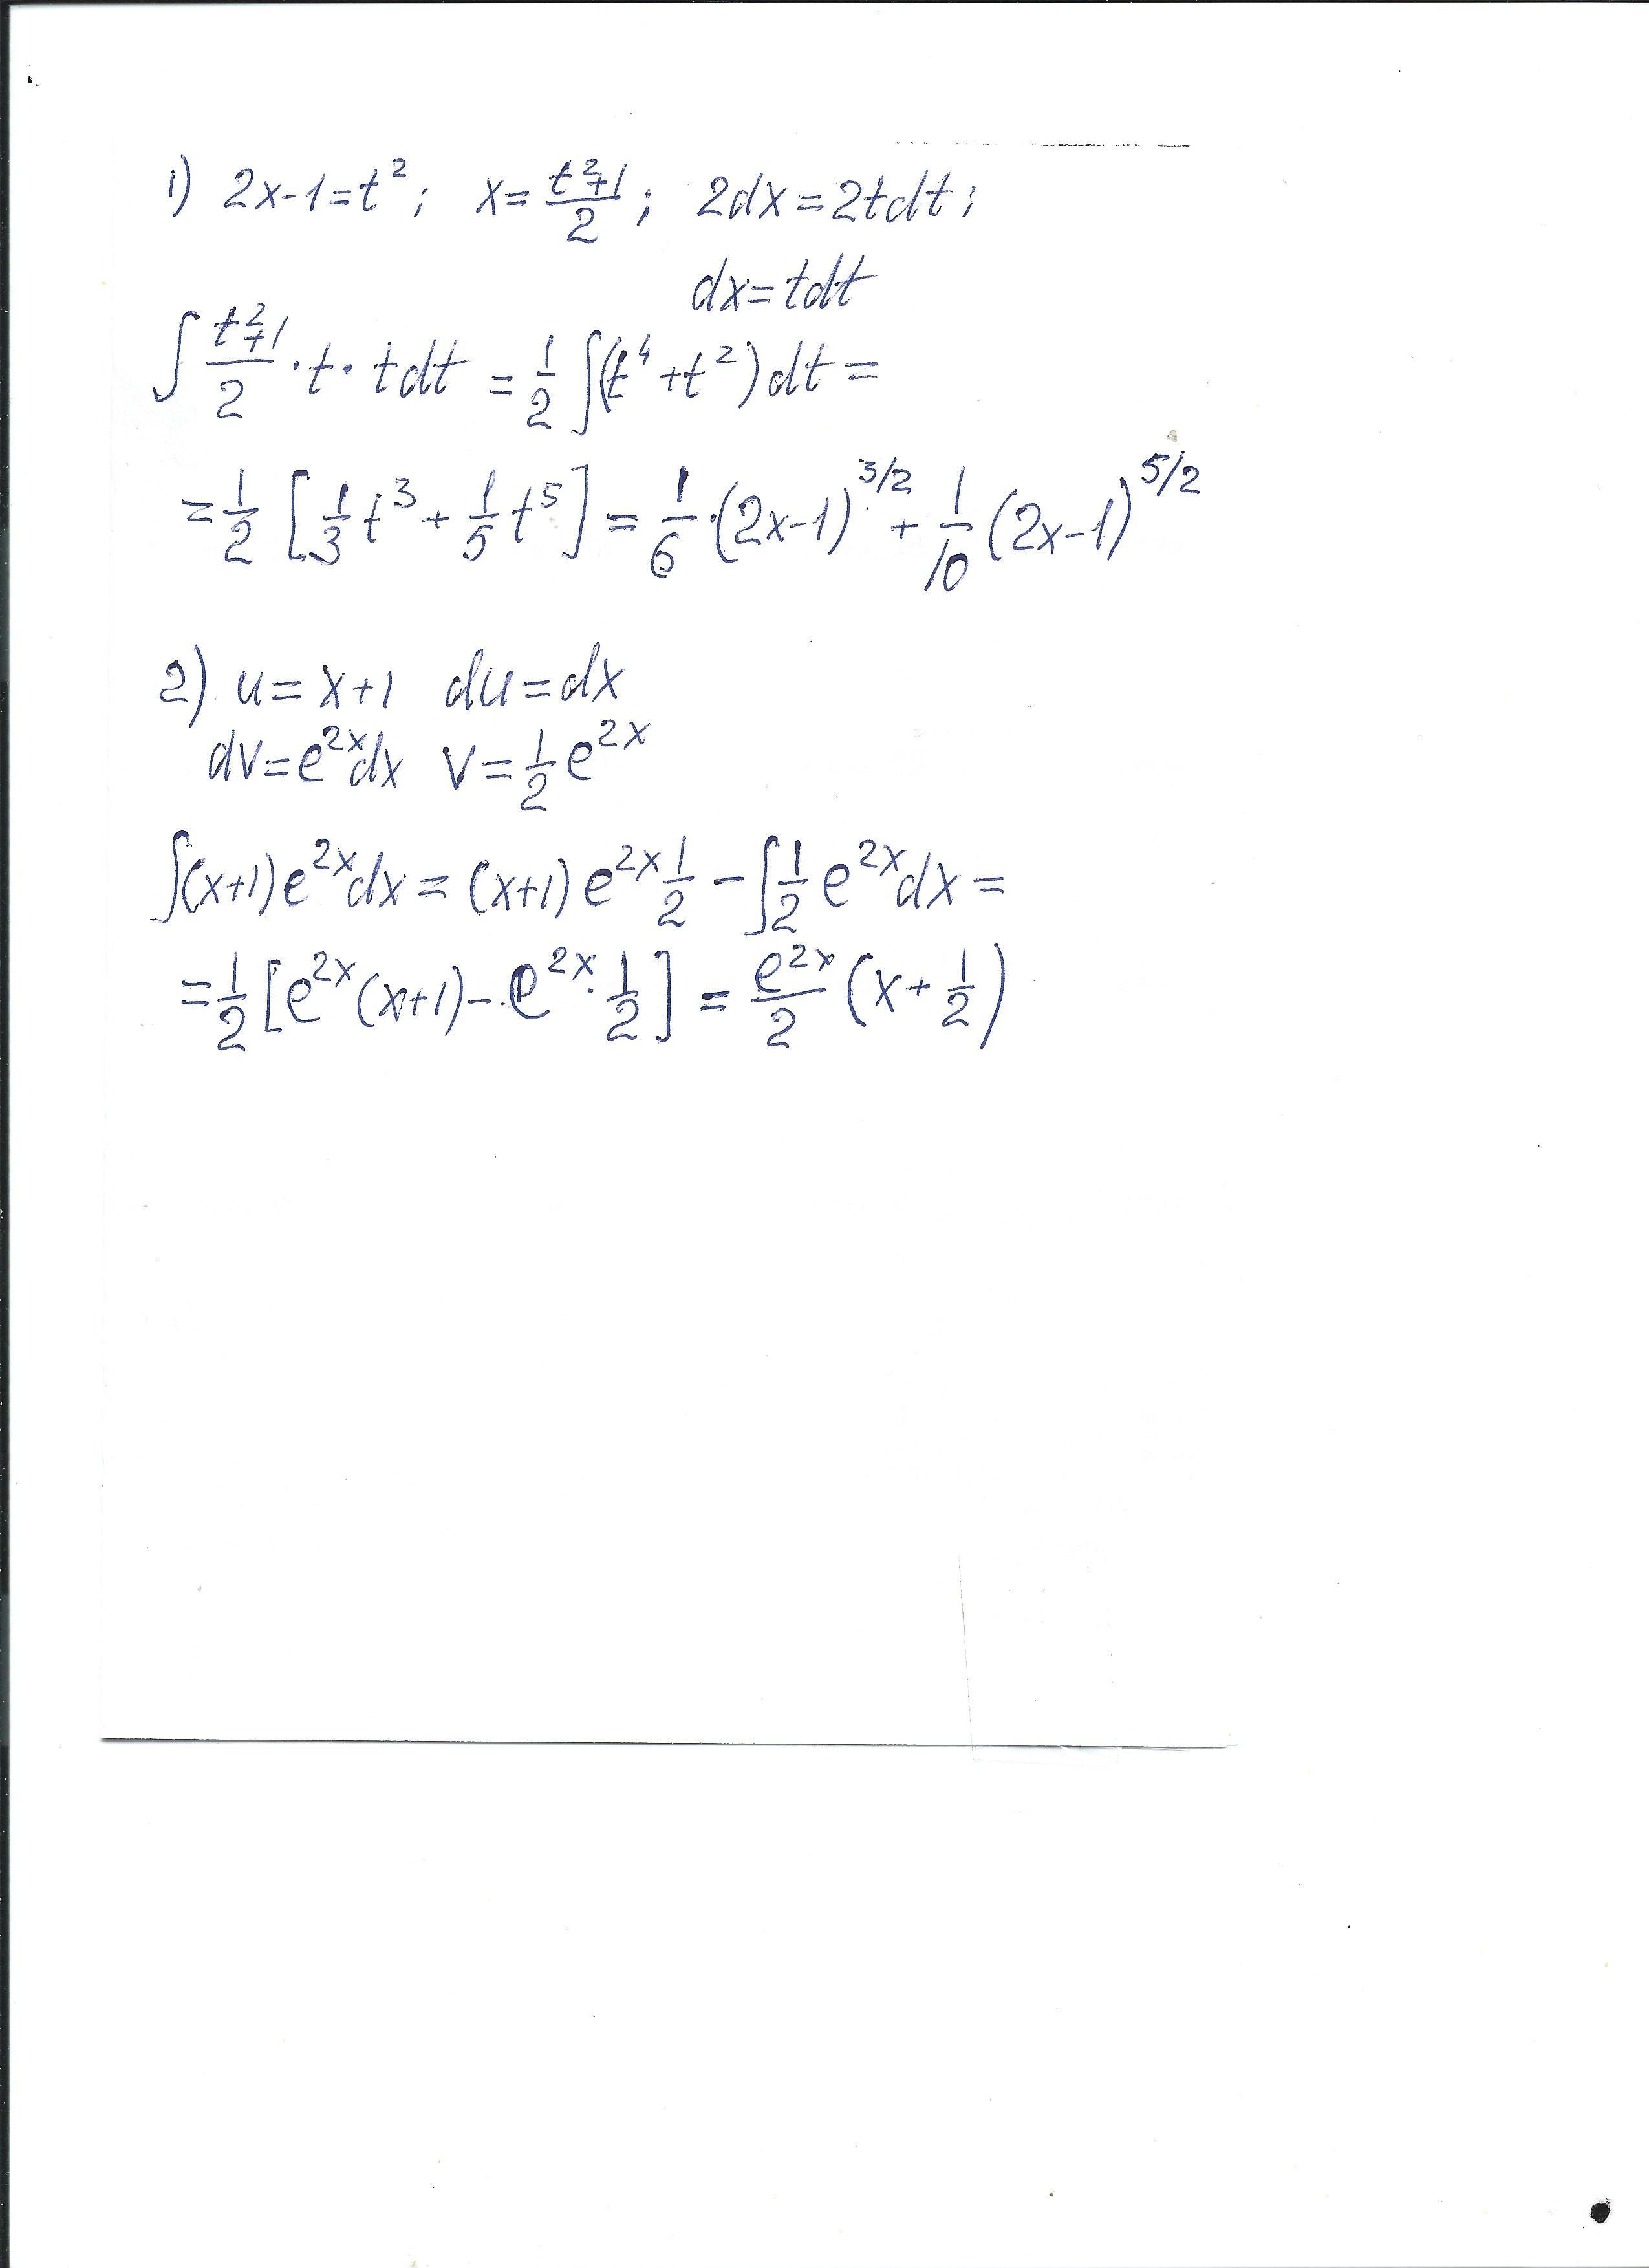 1) 2x-1=t²; x=(t²+1)/2; 2dx=2tdt;
dx=tdt
∫(t²+1)/2·t·tdt=1/2∫(t⁴+t²)dt=
=1/2[1/3t³+1/5t⁵]=1/6·(2x-1)^(3/2)+1/10(2x-1)^(5/2)
2) u=x+1 du=dx
dv=e^(2x)dx v=1/2e^(2x)
∫(x+1)e^(2x)dx=(x+1)e^(2x)1/2-∫1/2e^(2x)dx=
=1/2[e^(2x)(x+1)-e^(2x)·1/2]=e^(2x)/2(x+1/2)